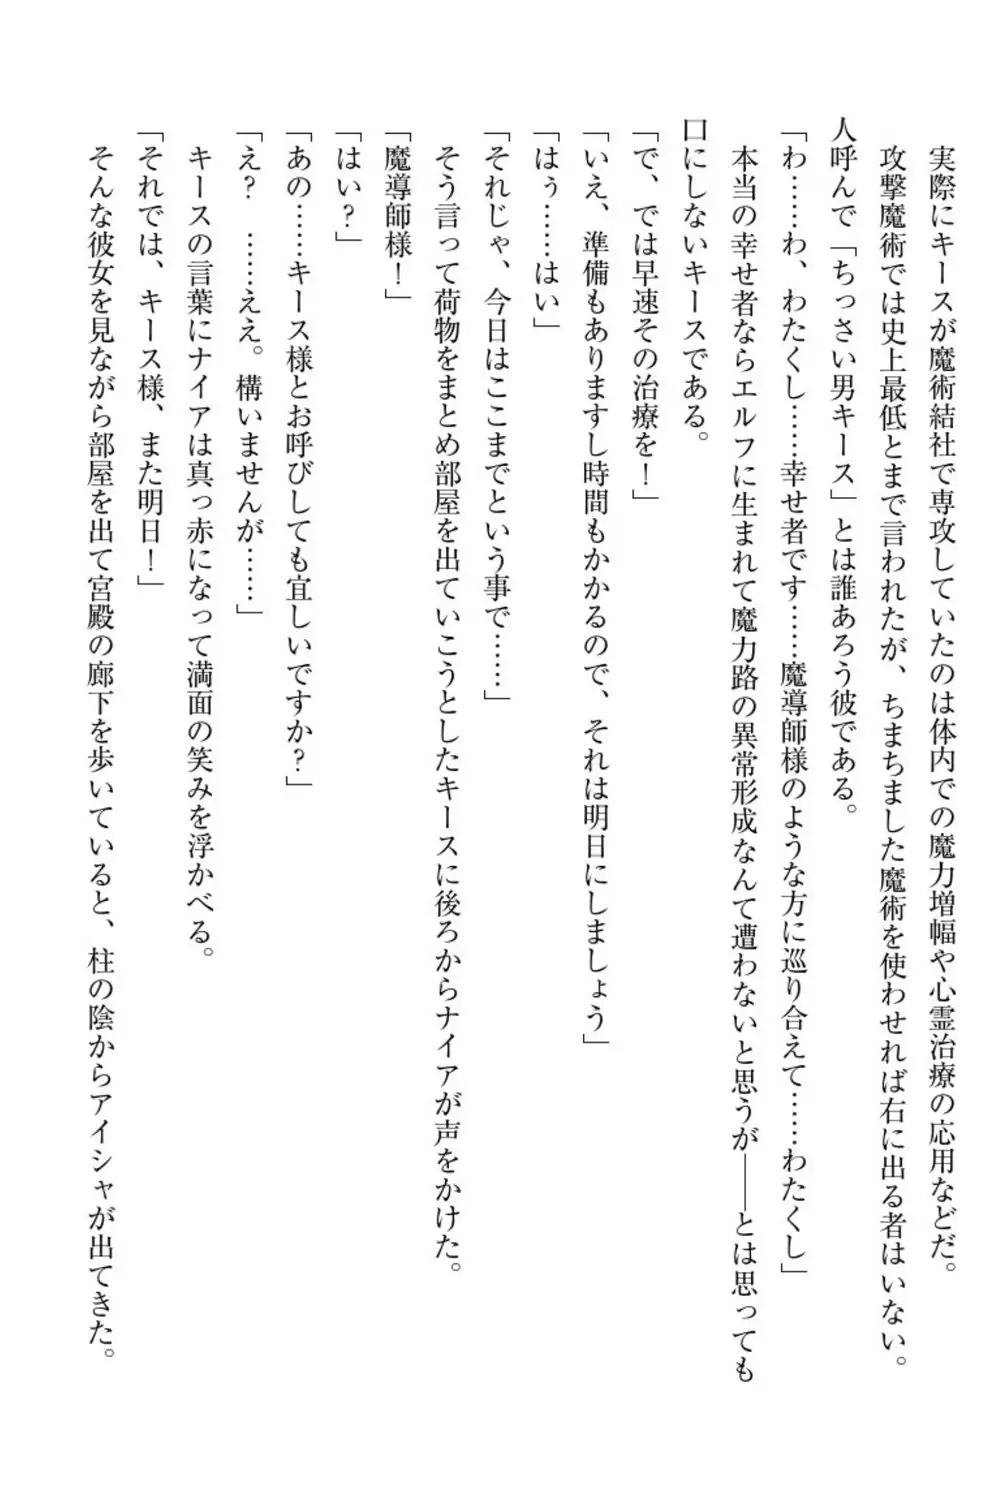 実際にキースが魔術結社で専攻していたのは体内での魔力増幅や心霊治療の応用などだ。
攻撃魔術では史上最低とまで言われたが、ちまちました魔術を使わせれば右に出る者はいない。
人呼んで「ちっさい男キース」とは誰あろう彼である。
「わ……わ、わたくし……幸せ者です……魔導師様のような方に巡り合えて……わたくし」
本当の幸せ者ならエルフに生まれて魔力路の異常形成なんて遭わないと思うが――とは思っても
口にしないキースである。
「で、では早速その治療を！」
「いえ、準備もありますし時間もかかるので、それは明日にしましょう」
「はぅ……はい」
「それじゃ、今日はここまでという事で……」
そう言って荷物をまとめ部屋を出ていこうとしたキースに後ろからナイアが声をかけた。
「魔導師様！」
「はい？」
「あの……キース様とお呼びしても宜しいですか？」
「え？　……ええ。構いませんが……」
キースの言葉にナイアは真っ赤になって満面の笑みを浮かべる。
「それでは、キース様、また明日！」
そんな彼女を見ながら部屋を出て宮殿の廊下を歩いていると、柱の陰からアイシャが出てきた。